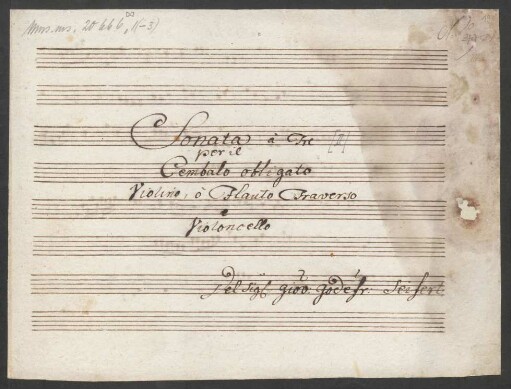 Mus. ms. 20 666, (1-3)
Sonata â Tre
per il
Cembalo obligato
Violino, ô Flauto Traverso
e
Violoncello
del Sigl. Giov. Godefr. Seifert